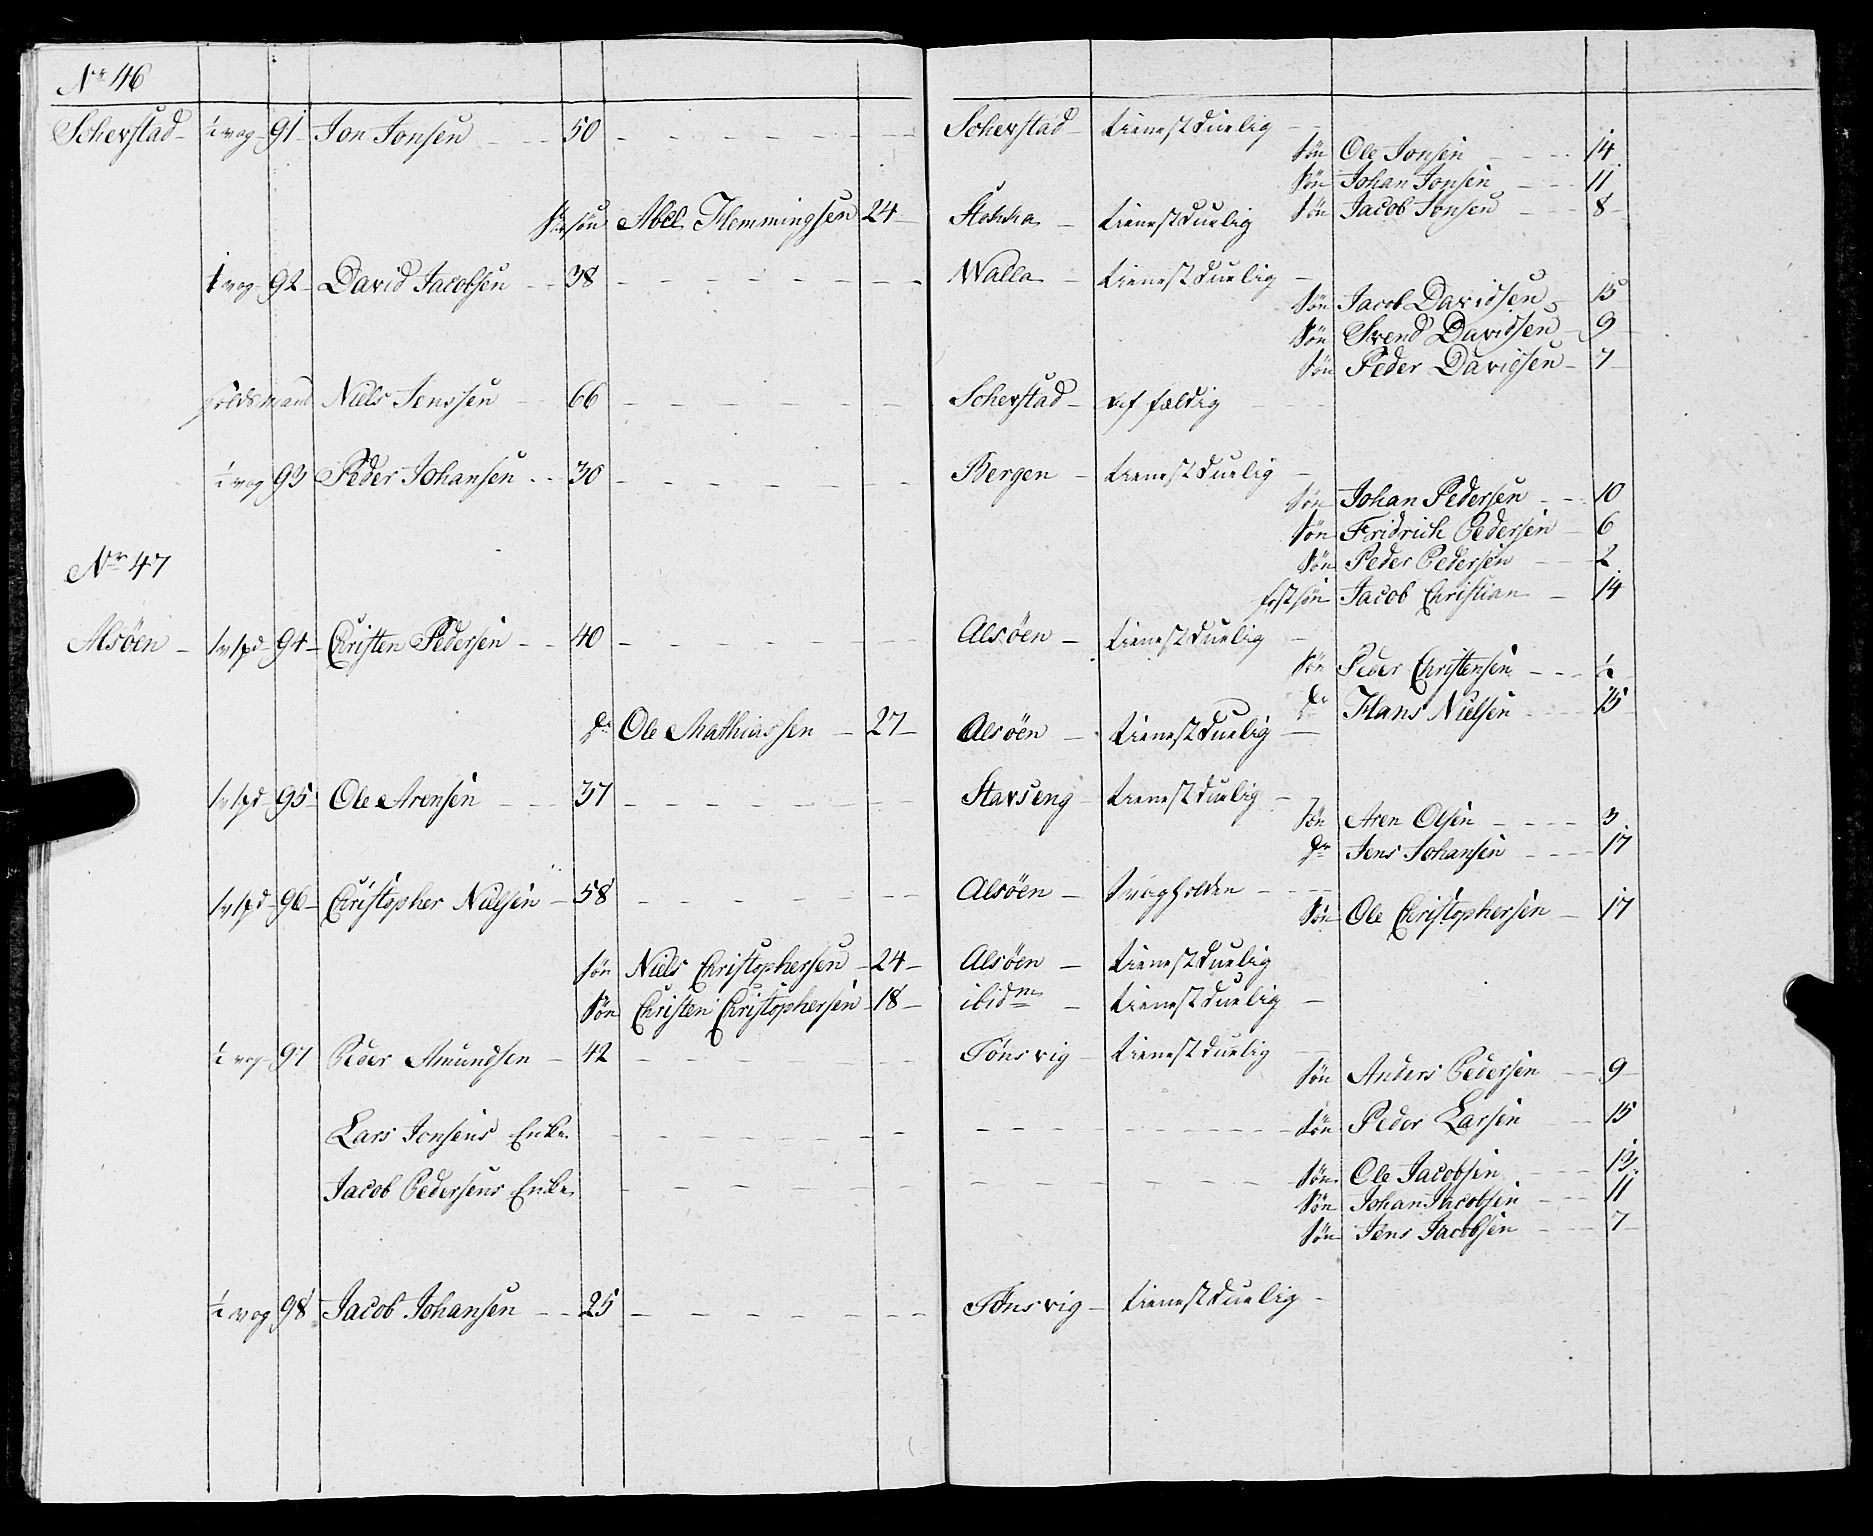 No 46
Scherstad - ½ vog - 91 - Jon Jonsen - 50 - Scherstad - tienestduelig -
Søn Ole Jonsen - 14
Søn Johan Jonsen - 11
søn Abel Flemmingsen 24 - Stokka - tienestduelig Søn Jacob Jonsen - 8
1 vog - 92 - David Jacobsen - 38 - Walla - tienestduelig -
Søn Jacob Davidsen - 15
Søn Svend Davidsen - 9
Søn Peder Davidsen - 7
Niels Jenssen - 66 - Scherstad - fældig
½ vog 93 Peder Johansen - 30 - Bergen - tienestduelig -
Søn Johan Pedersen - 10
Søn Fridrich Pedersen - 6
No 47 Søn Peder Pedersen - 2
fostsøn Jacob Christian - 14
Alsøen - 94 - Christen Pedersen - 40 - Alsøen - tienestduelig -
Søn Peder Christensen - ½
Hans Nielsen - 15
Ole Mathiassen - 27 - Alsøen - tienestduelig -
95 Ole Arensen - 37 - Stavseng - tienestduelig -
Søn Aren Olsen - 3
Jens Johansen - 17
96 - Christopher Nielsen - 58 - Alsøen -
Søn Ole Christophersen - 17
søn Niels Christophersen - 24 - Alsøen - tienestduelig
Søn Christen Christophersen - 18 - ibidm - tienestduelig -
½ vog - 97 Peder Amundsen - 42 - Tønsvig - tienestduelig -
Søn Anders Pedersen - 9
Lars Jonsens Enke - Søn Peder Larsen - 15
Jacob Pedersens Enke - Søn Ole Jacobsen - 13
Søn Johan Jacobsen - 11
Søn Jens Jacobsen - 7
½ vog 98 Jacob Johansen - 25 - Tønsvig - tienestduelig -